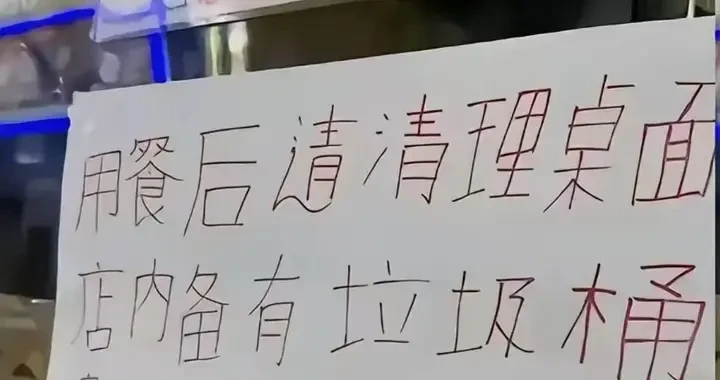 用餐后请清理桌面
店内备有垃圾桶